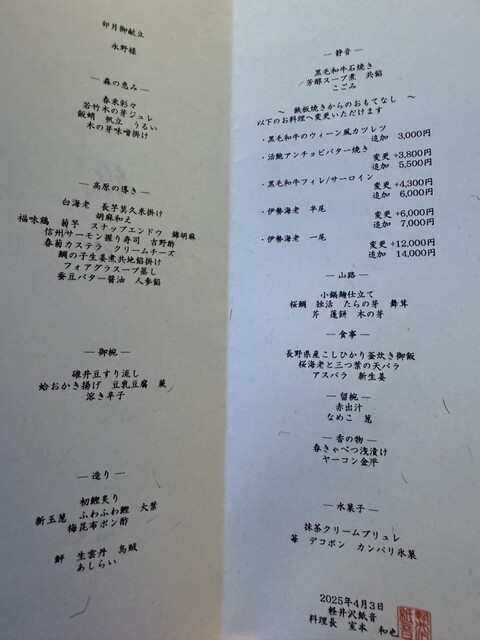 卯月御献立
氷野様
― 森の恵み ―
春米彩々
若竹木の芽ジュレ
飯蛸　帆立　うるい
木の芽味噌掛け
― 高原の導き ―
白海老　長子莫久来掛け
胡麻和え
福味鶏　菊芋　スナップエンドウ　錦胡麻
信州サーモン握り寿司　吉野酢
春菊カステラ　クリームチーズ
鯛の子生姜煮共地餡掛け
フォアグラスープ蒸し
蚕豆バター醤油　人参餡
― 御椀 ―
碓井豆すり流し
蛤おかき揚げ　豆乳豆腐　蕨
溶き辛子
― 造り ―
初鰹炙り
新玉葱　ふわふわ鰹　大葉
梅昆布ポン酢
鮃　生雲丹　烏賊
あしらい
― 静音 ―
黒毛和牛石焼き
芳醇スープ煮　共餡
こごみ
～　鉄板焼きからのおもてなし　～
以下のお料理へ変更いただけます
・黒毛和牛のウィーン風カツレツ
追加　3,000円
・活鮑アンチョビバター焼き
変更 +3,800円
追加　5,500円
・黒毛和牛フィレ/サーロイン
変更 +4,300円
追加　6,000円
・伊勢海老　半尾
変更 +6,000円
追加　7,000円
・伊勢海老　一尾
変更 +12,000円
追加　14,000円
― 山路 ―
小鍋麹仕立て
桜鯛　独活　たらの芽　舞茸
芹　蓬餅　木の芽
― 食事 ―
長野県産こしひかり釜炊き御飯
桜海老と三つ葉の天バラ
アスパラ　新生姜
― 留椀 ―
赤出汁
なめこ　葱
― 香の物 ―
春きゃべつ浅漬け
ヤーコン金平
― 水菓子 ―
抹茶クリームブリュレ
苺　デコポン　カンパリ氷菓
2025年4月3日
軽井沢紙音
料理長　室本　和也